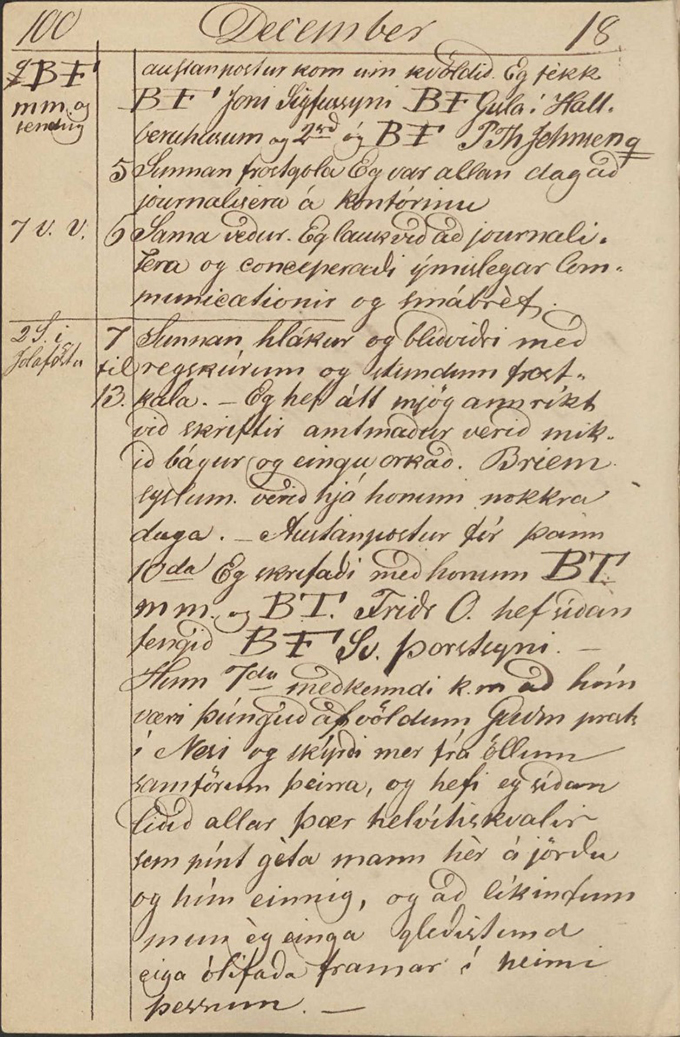 100 December 18
BF mm. og sending
austanpóstur kom um kvöldid. Eg fèkk
BF Jóni Sigfussyni BF Gula í Hall-
beruhúsum og 2 og BF P Th Johnsen
5 Sunnan frostgola Eg var allan dag ad
journalisera á kontórinu
7 v. v. 6 Sama vedur. Eg lauk vid ad journali-
sera og conceperadi ýmislegar Com-
municationir og smábrèf.
2 S. í Jólaföstu
7 Sunnan hlákur og blídvidri med
til regskúrum og stundum frost-
13. kala. — Eg hef átt mjög annríkt
vid skriftir amtmadur verid mik-
id bágur og eingu orkad. Briem
syslum. verid hjá honum nokkra
daga. — Austanpóstur fór þann
10da Eg skrifadi med honum BT.
mm. og BT. Fridr O. hef sídan
fengid BF Sv. Þorstsyni. —
Hinn 7da medkenndi k.m ad hún
væri þúngud af völdum Gudm prests
í Nesi og skýrdi mer frá öllum
samförum þeirra, og hefi eg sídan
lidid allar þær helvítiskvalir
sem pínt gèta mann hèr á jördu
og hún einnig, og ad líkindum
mun èg einga gledistund
eiga ólifada framar í heimi
þessum. —